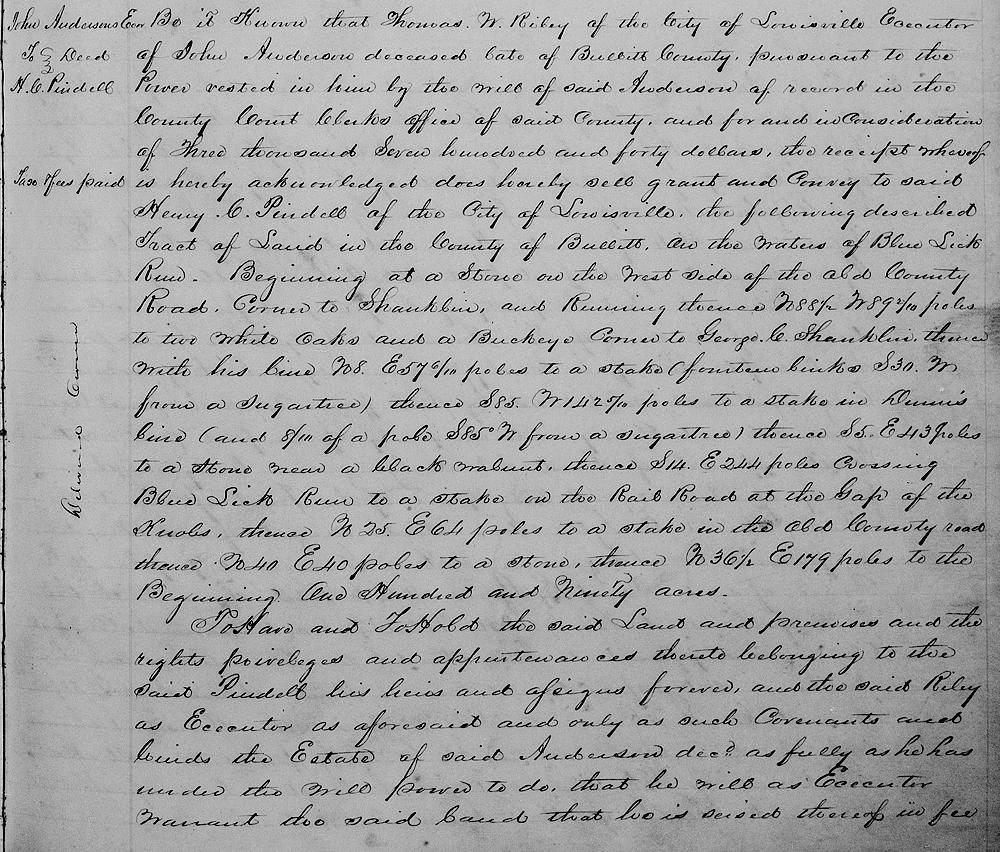 John Andersons Exor
To Deed
H. C. Pindell
Taxo & fees paid
Be it Known that Thomas. W. Riley of the City of Louisville Executor
of John Anderson deceased late of Bullitt County, pursuant to the
Power vested in him by the will of said Anderson of record in the
County Court Clerks office of said County, and for and in Consideration
of Three thousand Seven hundred and forty dollars, the receipt whereof
is hereby acknowledged does hereby sell grant and Convey to said
Henry. C. Pindell of the City of Louisville. the following described
Tract of Land in the County of Bullitt. On the waters of Blue Lick
Run. Beginning at a Stone on the West side of the Old County
Road. Corner to Shanklin, and Running thence N88½ W89 2/10 poles
to two white Oaks and a Buckeye Corner to George. C. Shanklin, thence
with his line N8. E57 6/10 poles to a stake (fourteen links S30. W
from a Sugartree) thence S85. W142 5/10 poles to a stake in Dunn's
line (and 8/10 of a pole S85° W from a sugartree) thence S5. E43 poles
to a stone near a black walnut, thence S14. E244 poles Crossing
Blue Lick Run to a stake on the Rail Road at the Gap of the
Knobs, thence N25. E64 poles to a stake in the Old County road
thence N40 E40 poles to a stone, thence N36½ E179 poles to the
Beginning. One Hundred and Ninety acres.
To Have and To Hold the said Land and premises and the
rights priveleges and appurtenances thereto belonging to the
said Pindell his heirs and assigns forever, and the said Riley
as Executor as aforesaid and only as such Covenants and
binds the Estate of said Anderson decd. as fully as he has
under the will power to do, that he will as Executor
warrant the said land that he is seised thereof in fee